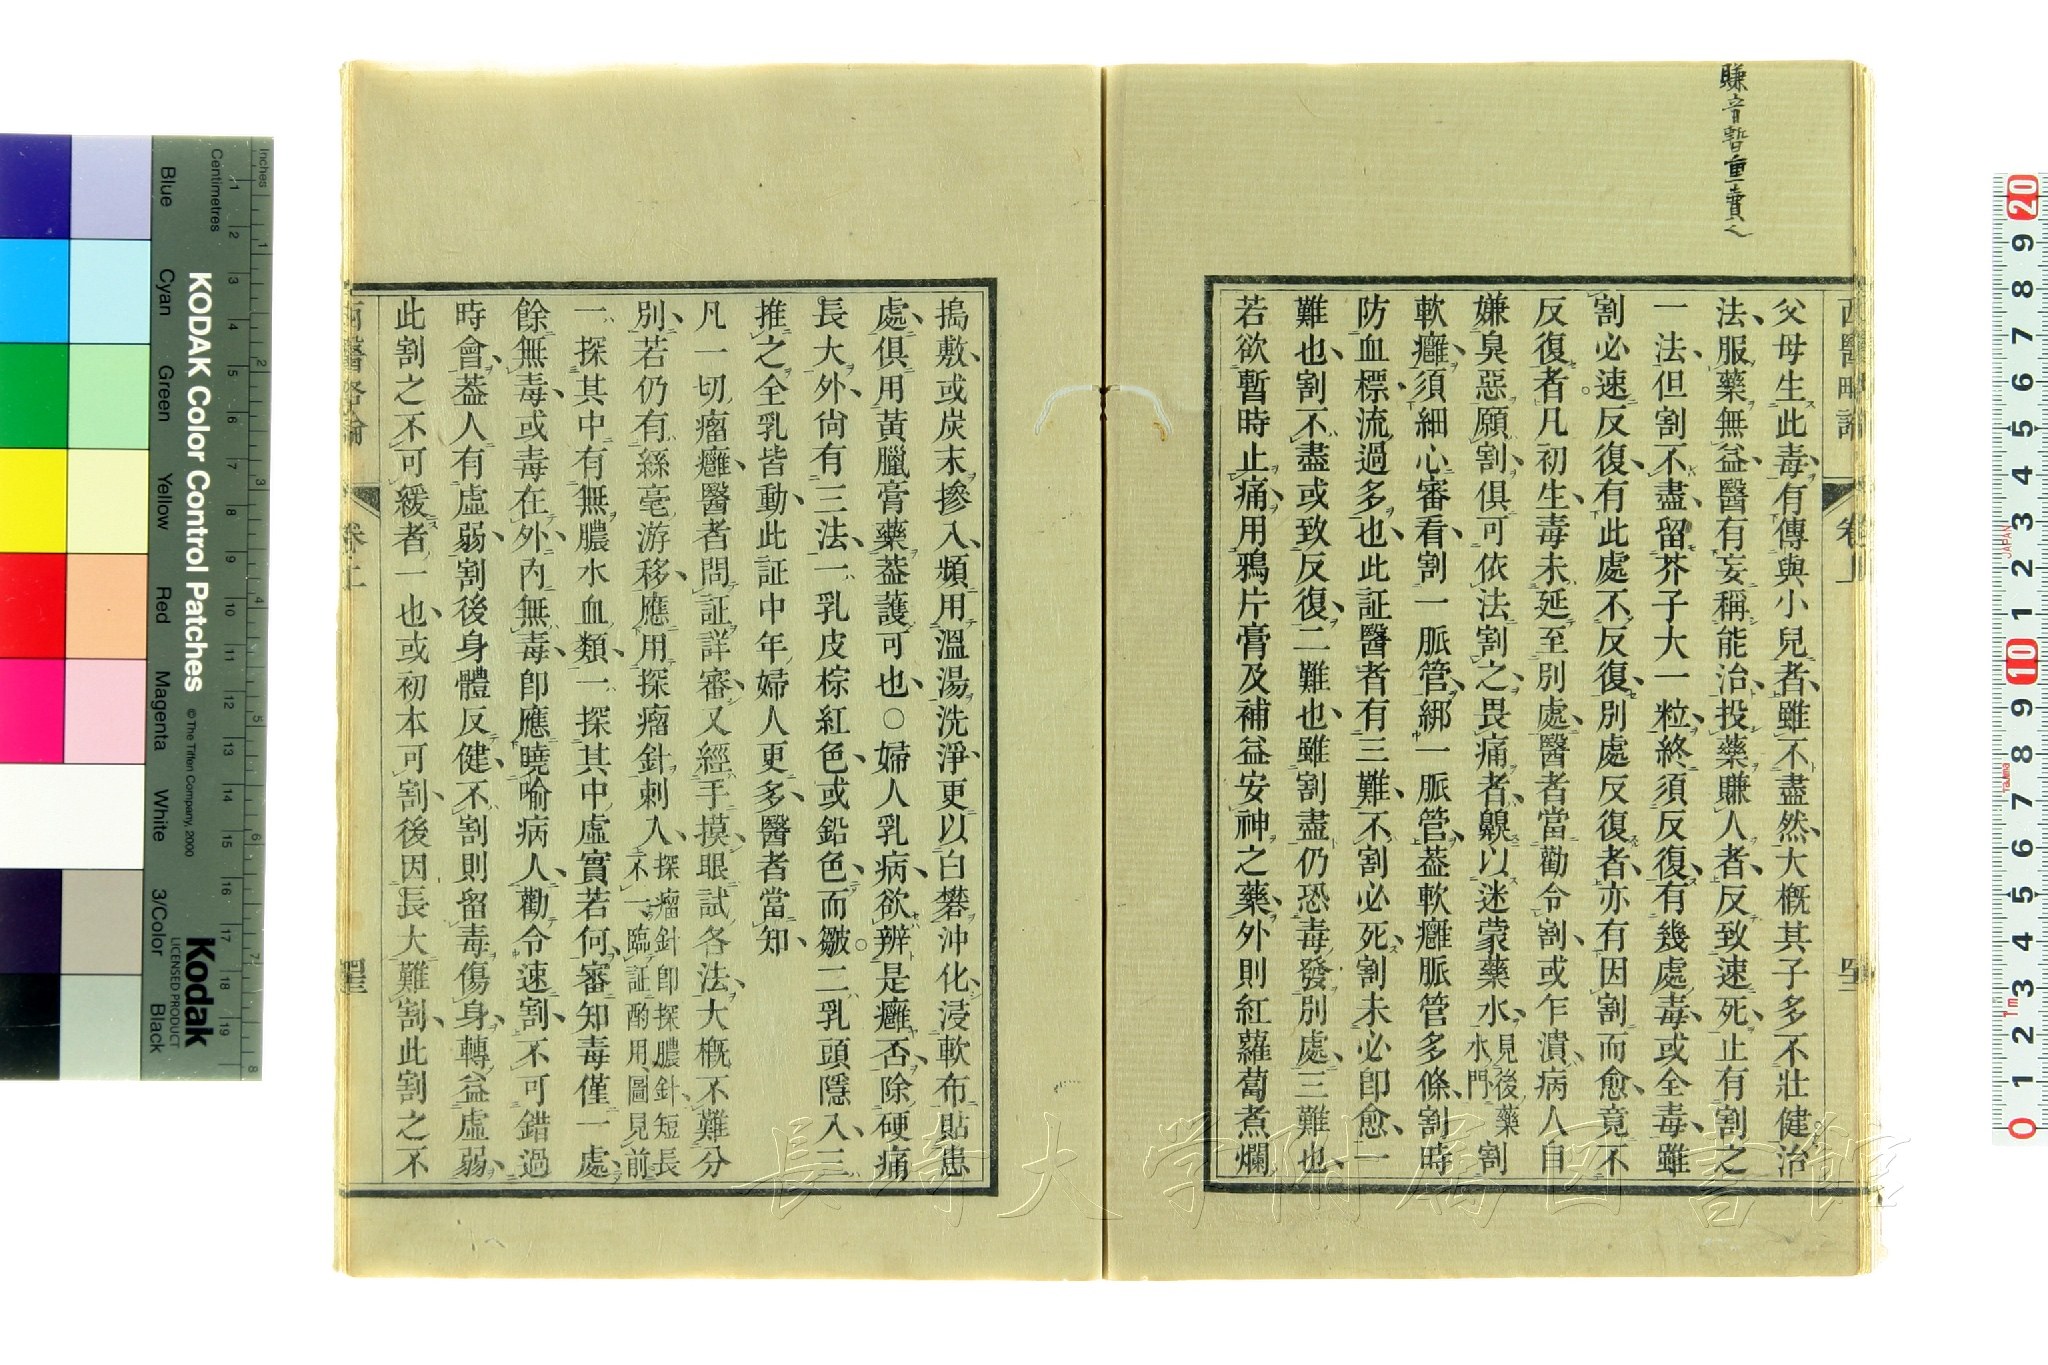 賺音暫重賣也
西醫略論
卷上
父母生此毒有傳與小兒者雖不盡然大概其子多不壯健治
法服藥無益醫有妄稱能治投藥賺人者反致速死止有割之
一法但割不盡留芥子大一粒終須反復有幾處毒或全毒雖
割必速反復有此處不反復別處反復者亦有因割而愈竟不
反復者凡初生毒未延至別處醫者當勸令割或乍潰病人自
嫌臭惡願割俱可依法割之畏痛者齅以迷蒙藥水見後藥水門割
軟癰須細心審看割一脈管綁一脈管葢軟癰脈管多條割時
防血標流過多也此証醫者有三難不割必死割未必卽愈一
難也割不盡或致反復二難也雖割盡仍恐毒發別處三難也
若欲暫時止痛用鴉片膏及補益安神之藥外則紅蘿蔔煮爛
搗敷或炭末摻入頻用溫湯洗淨更以白礬沖化浸軟布貼患
處俱用黃臘膏藥葢護可也○婦人乳病欲辨是癰否除硬痛
長大外尙有三法一乳皮棕紅色或鉛色而皺二乳頭隱入三
推之全乳皆動此証中年婦人更多醫者當知
凡一切瘤癰醫者問証詳審又經手摸眼試各法大概不難分
別若仍有絲毫游移應用探瘤針刺入探瘤針卽探膿針短長不一臨証酌用圖見前
一探其中有無膿水血類一探其中虛實若何審知毒僅一處
餘無毒或毒在外內無毒卽應曉喻病人勸令速割不可錯過
時會葢人有虛弱割後身體反健不割則留毒傷身轉益虛弱
此割之不可緩者一也或初本可割後因長大難割此割之不
西醫畧論
卷上
長崎大学附属図書館
KODAK Color Control Patches
© The Tiffen Company, 2000
Kodak
LICENSED PRODUCT
Inches
Centimetres
Blue
Cyan
Green
Yellow
Red
Magenta
White
3/Color
Black